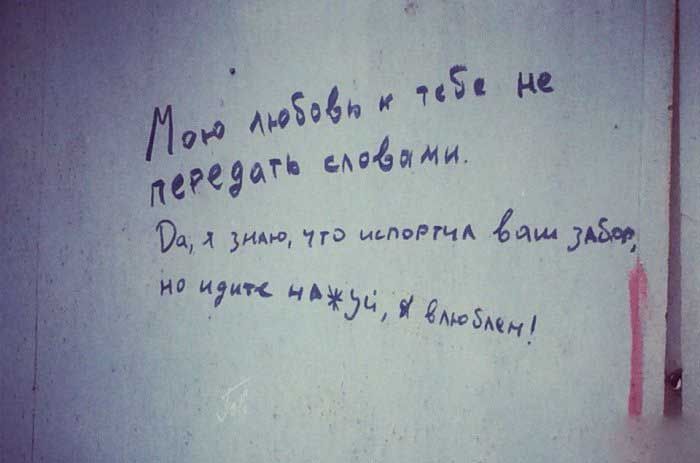 Мою любовь к тебе не
передать словами.
Да, я знаю, что испортил ваш забор,
но идите на*уй, я влюблен!